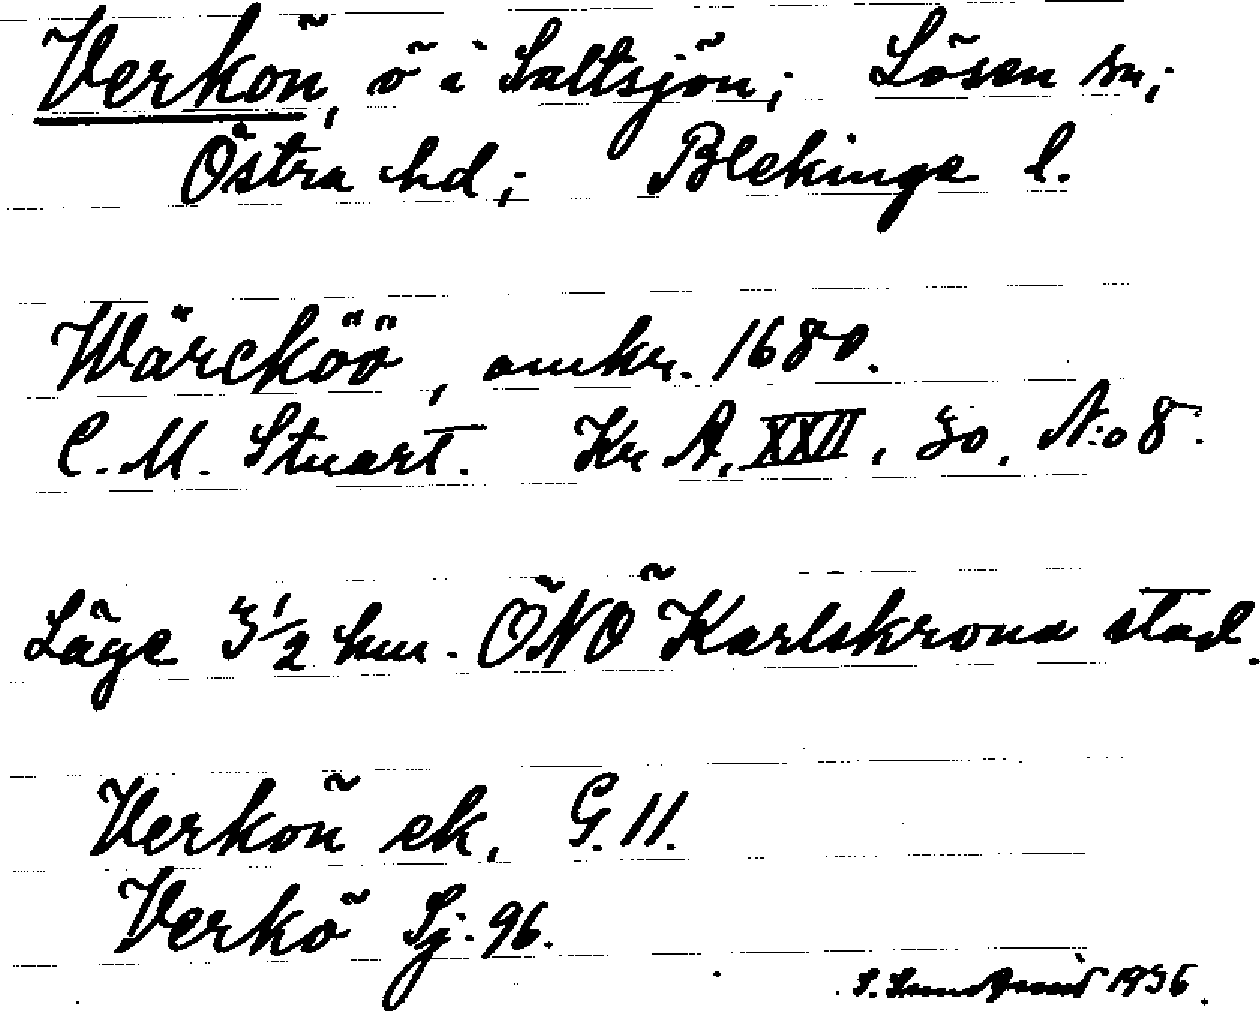 Verkön, ö i Saltsjön; Lösen sn;
Östra hd; Blekinge l.
Wärcköö, omkr. 1680.
C. M. Stuart. Kr A, XXII, 30, N:o 8.
Läge 3 1/2 km. ÖNÖ Karlskrona stad.
Verkön ek. G. 11.
Verkö Sj. 96.
1936.